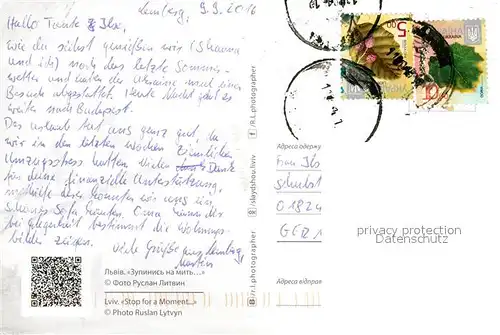 Lemberg, 9.9.2016
Hallo Tante Ilse,
wie du siehst genießen wir (Shanna
und ich) noch das letzte Sommer-
wetter und haben der Ukraine mal einen
Besuch abgestattet. Heute Nacht geht es
weiter nach Budapest.
Der Urlaub tut uns ganz gut, da
wir in den letzten Wochen ziemlichen
Umzugsstress hatten. Vielen Dank
für deine finanzielle Unterstützung,
mithilfe derer konnten wir uns ein
schönes Sofa kaufen. Oma kann dir
bei Gelegenheit bestimmt die Wohnungs-
bilder zeigen.
Viele Grüße aus Lemberg
Martin
Львів. «Зупинись на мить...»
© Фото Руслан Литвин
Lviv. «Stop for a Moment...»
© Photo Ruslan Lytvyn
/r.l.photographer
/slaydshou.lviv
/R.l.photographer
5 00
10
Адреса одержу
Frau Ilse
01824
GER
Адреса відправ
privacy protection
Datenschutz